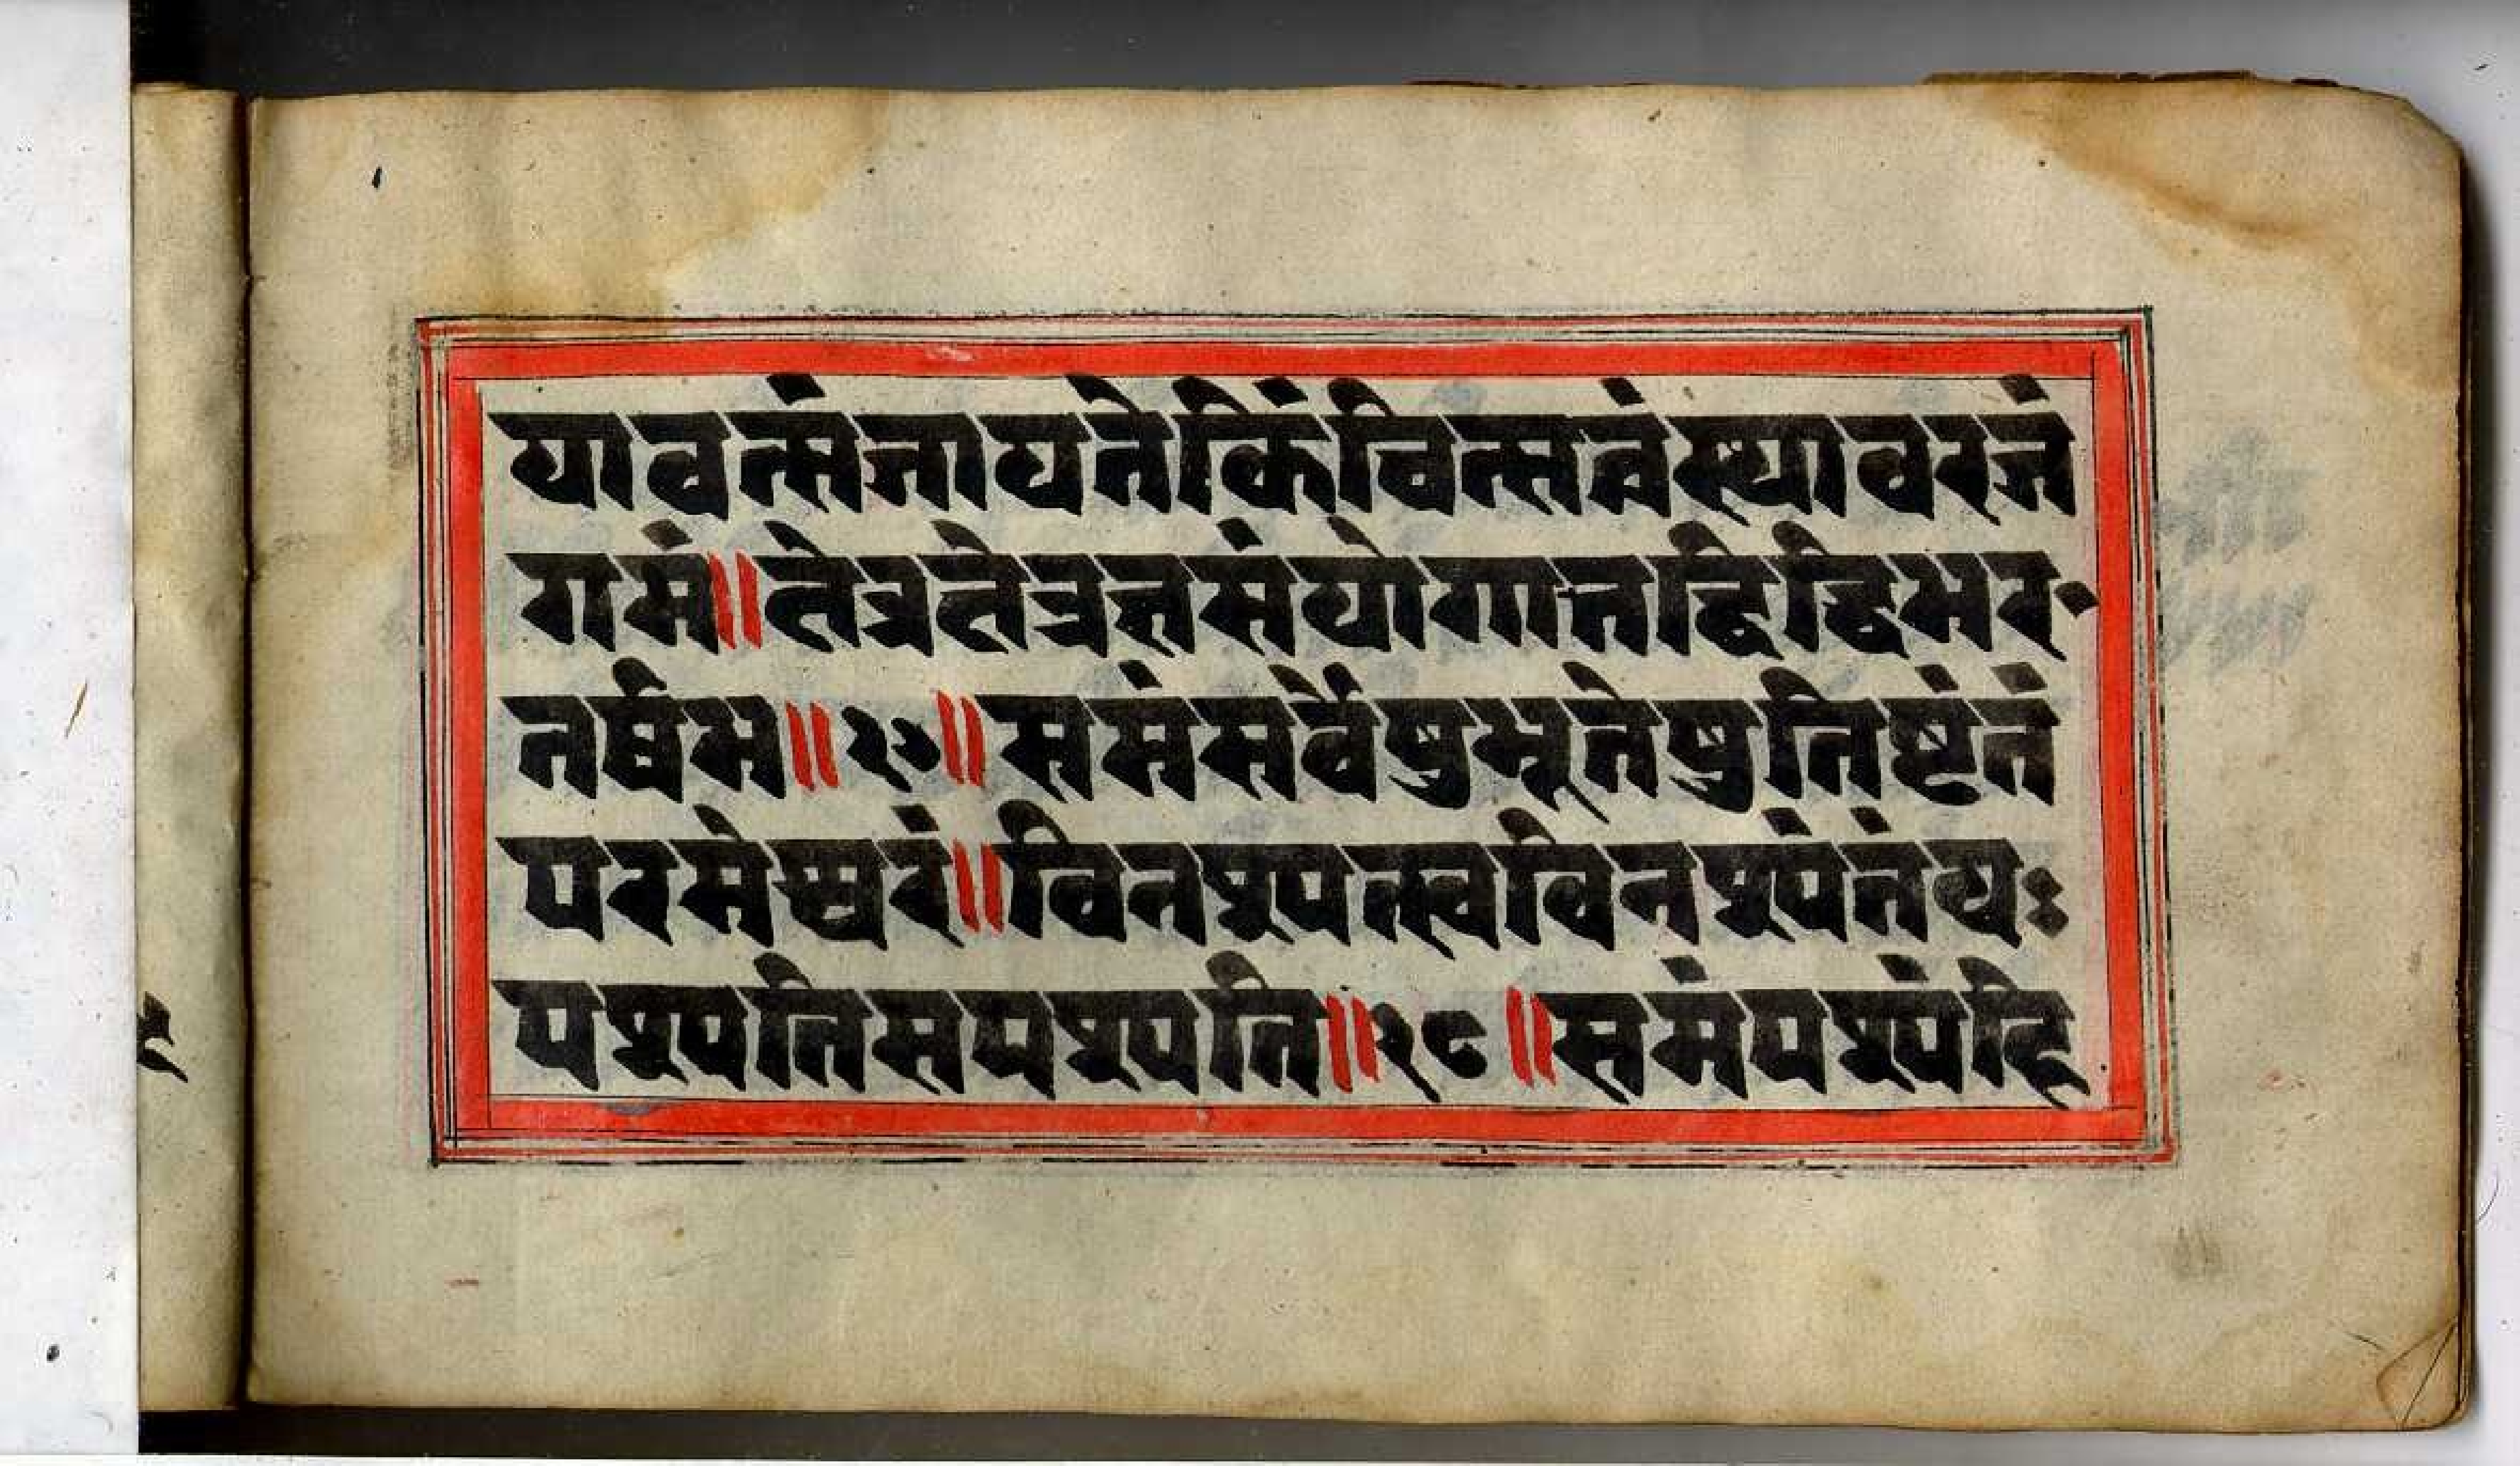 यावत्संजायतेकिंचित्सत्वंस्थावरजं
गमं॥तेत्रतेत्रज्ञसंयोगात्तद्विद्धिभर
तर्षभ॥२७॥समंसर्वेषुभूतेषुतिष्टंतं
परमेश्वरं॥विनश्यत्स्वविनश्यंतंयः
पश्यतिसपश्यति॥२८॥समंपश्यंहि